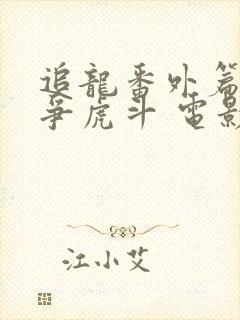 追龍番外篇
爭虎斗 電影
江小艾